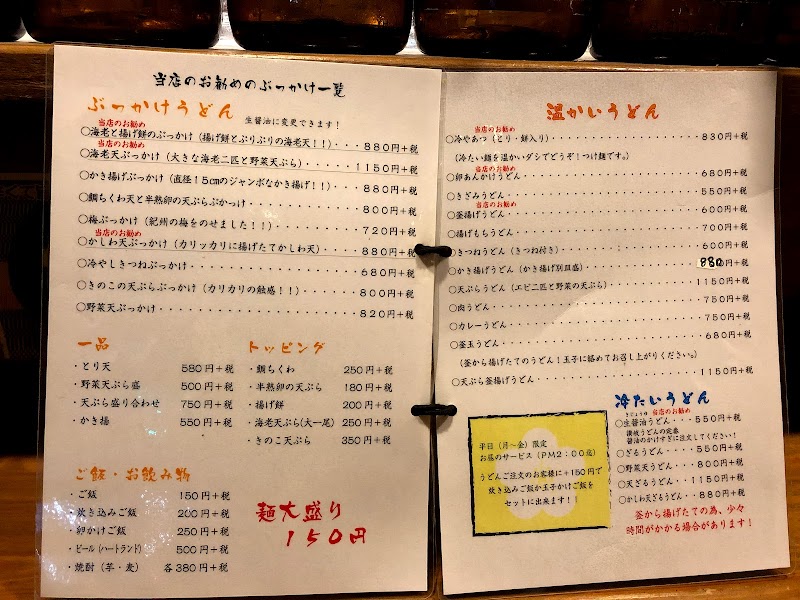 当店のお勧めのぶっかけ一覧
ぶっかけうどん 生醤油に変更できます！
当店のお勧め
○海老と揚げ餅のぶっかけ（揚げ餅とぷりぷりの海老天！！）・・・880円＋税
当店のお勧め
○海老天ぶっかけ（大きな海老二匹と野菜天ぷら）・・・・・1150円＋税
○かき揚げぶっかけ（直径15cmのジャンボなかき揚げ！！）・・・880円＋税
○鯛ちくわ天と半熟卵の天ぷらぶかっけ・・・・・・・・・・・800円＋税
○梅ぶっかけ（紀州の梅をのせました！！）・・・・・・・・・720円＋税
当店のお勧め
○かしわ天ぶっかけ（カリッカリに揚げたてかしわ天）・・・・880円＋税
○冷やしきつねぶっかけ・・・・・・・・・・・・・・・・・680円＋税
○きのこの天ぷらぶっかけ（カリカリの触感！！）・・・・・・800円＋税
○野菜天ぶっかけ・・・・・・・・・・・・・・・・・・・・820円＋税
一品
・とり天 580円＋税
・野菜天ぷら盛 500円＋税
・天ぷら盛り合わせ 750円＋税
・かき揚 550円＋税
トッピング
・鯛ちくわ 250円＋税
・半熟卵の天ぷら 180円＋税
・揚げ餅 200円＋税
・海老天ぷら(大一尾) 250円＋税
・きのこ天ぷら 350円＋税
ご飯・お飲み物
・ご飯 150円＋税
・炊き込みご飯 200円＋税
・卵かけご飯 250円＋税
・ビール(ハートランド) 500円＋税
・焼酎（芋・麦） 各380円＋税
麺大盛り
150円
温かいうどん
当店のお勧め
○冷やあつ（とり・餅入り）・・・・・・・・・・・・・・830円＋税
（冷たい麺を温かいダシでどうぞ！つけ麺です。）
当店のお勧め
○卵あんかけうどん・・・・・・・・・・・・・・・・・・680円＋税
○きざみうどん・・・・・・・・・・・・・・・・・・・・550円＋税
当店のお勧め
○釜揚げうどん・・・・・・・・・・・・・・・・・・・・600円＋税
○揚げもちうどん・・・・・・・・・・・・・・・・・・・700円＋税
○きつねうどん（きつね付き）・・・・・・・・・・・・・600円＋税
○かき揚げうどん（かき揚げ別皿盛）・・・・・・・・・・880円＋税
○天ぷらうどん（エビ二匹と野菜の天ぷら）・・・・・・・1150円＋税
○肉うどん・・・・・・・・・・・・・・・・・・・・・・750円＋税
○カレーうどん・・・・・・・・・・・・・・・・・・・・750円＋税
○釜玉うどん・・・・・・・・・・・・・・・・・・・・・680円＋税
（釜から揚げたてのうどん！玉子に絡めてお召し上がりください。）
○天ぷら釜揚げうどん・・・・・・・・・・・・・・・・・1150円＋税
平日（月～金）限定
お昼のサービス（PM2：00迄）
うどんご注文のお客様に＋150円で
炊き込みご飯か玉子かけご飯を
セットに出来ます！！
冷たいうどん
きじょうゆ 当店のお勧め
○生醤油うどん・・・550円＋税
讃岐うどんの定番
醤油のかけすぎに注文してください！
○ざるうどん・・・・550円＋税
○野菜天うどん・・・800円＋税
○天ざるうどん・・・1150円＋税
○かしわ天ざるうどん・・880円＋税
釜から揚げたての為、少々
時間がかかる場合があります！